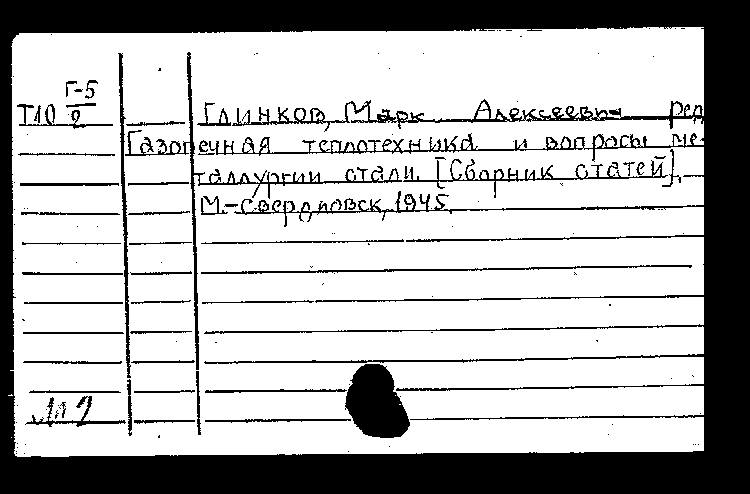 Г-5
Т10 2
Глинков, Марк Алексеевич ред
Газопечная теплотехника и вопросы ме-
таллургии стали. [Сборник статей].
М.-Свердловск, 1945.